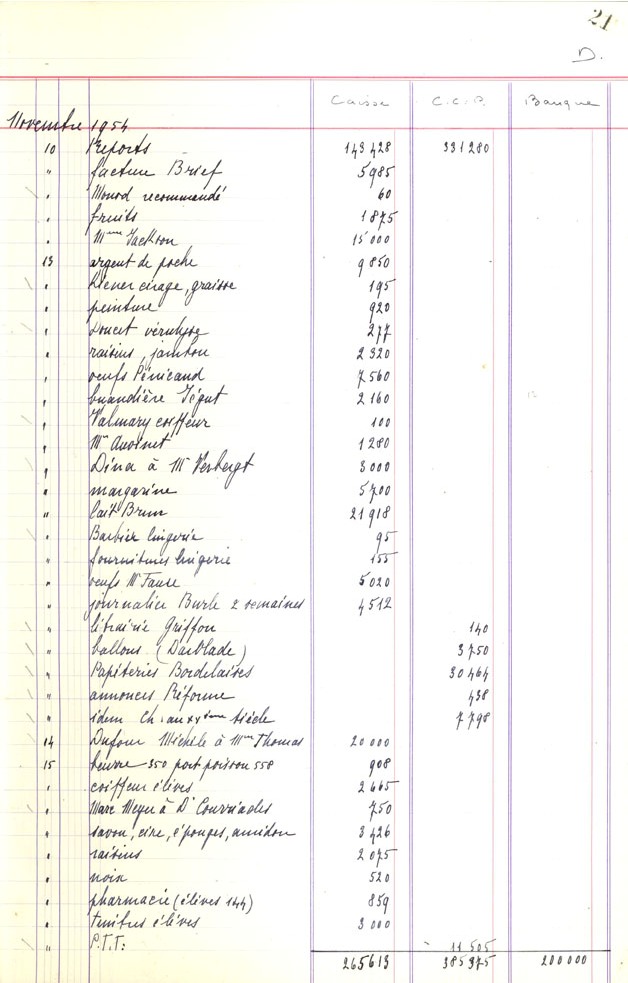 21
D.
Caisse C.C.P. Banque
Novembre 1954
10 Reports 143 428 331 280
" facture Brief 5 985
" Monod recommandé 60
" fruits 1 875
" Mme Jackson 15 000
13 argent de poche 9 850
" cirage, graisse 195
" peinture 920
" Doucet 277
" raisins, jambon 2 320
" oeufs Pénicaud 7 560
" buandière 2 160
" Valmary coiffeur 100
" 1 280
" Dina à 3 000
" margarine 5 700
" lait Brun 21 918
" Barbier lingerie 95
" fournitures lingerie 155
" oeufs 5 020
" journalier Burle 2 semaines 4 512
" librairie Griffon 140
" ballons (Darblade) 3 750
" Papèteries Bordelaises 30 464
" annonces Réforme 438
" idem Ch. au XXème siècle 7 798
14 Dufour Michèle à Mme Thomas 20 000
15 beurre 350 port poisson 558 908
" coiffeur élèves 2 665
" Marc Meyer à Dr 750
" savon, cire, éponges, amidon 3 426
" raisins 2 075
" noix 520
" pharmacie (élèves 144) 859
" timbres élèves 3 000
" P.T.T: 11 505
265 613 385 375 200 000